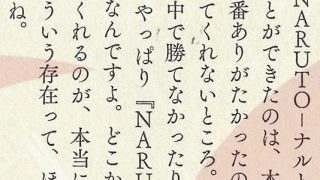 NARUTO―ナルト
とができたのは、本
番ありがたかったの
てくれないところ。
中で勝てなかったり
やっぱり『NARU
なんですよ。どこか
くれるのが、本当に
ういう存在って、ほ
ね。